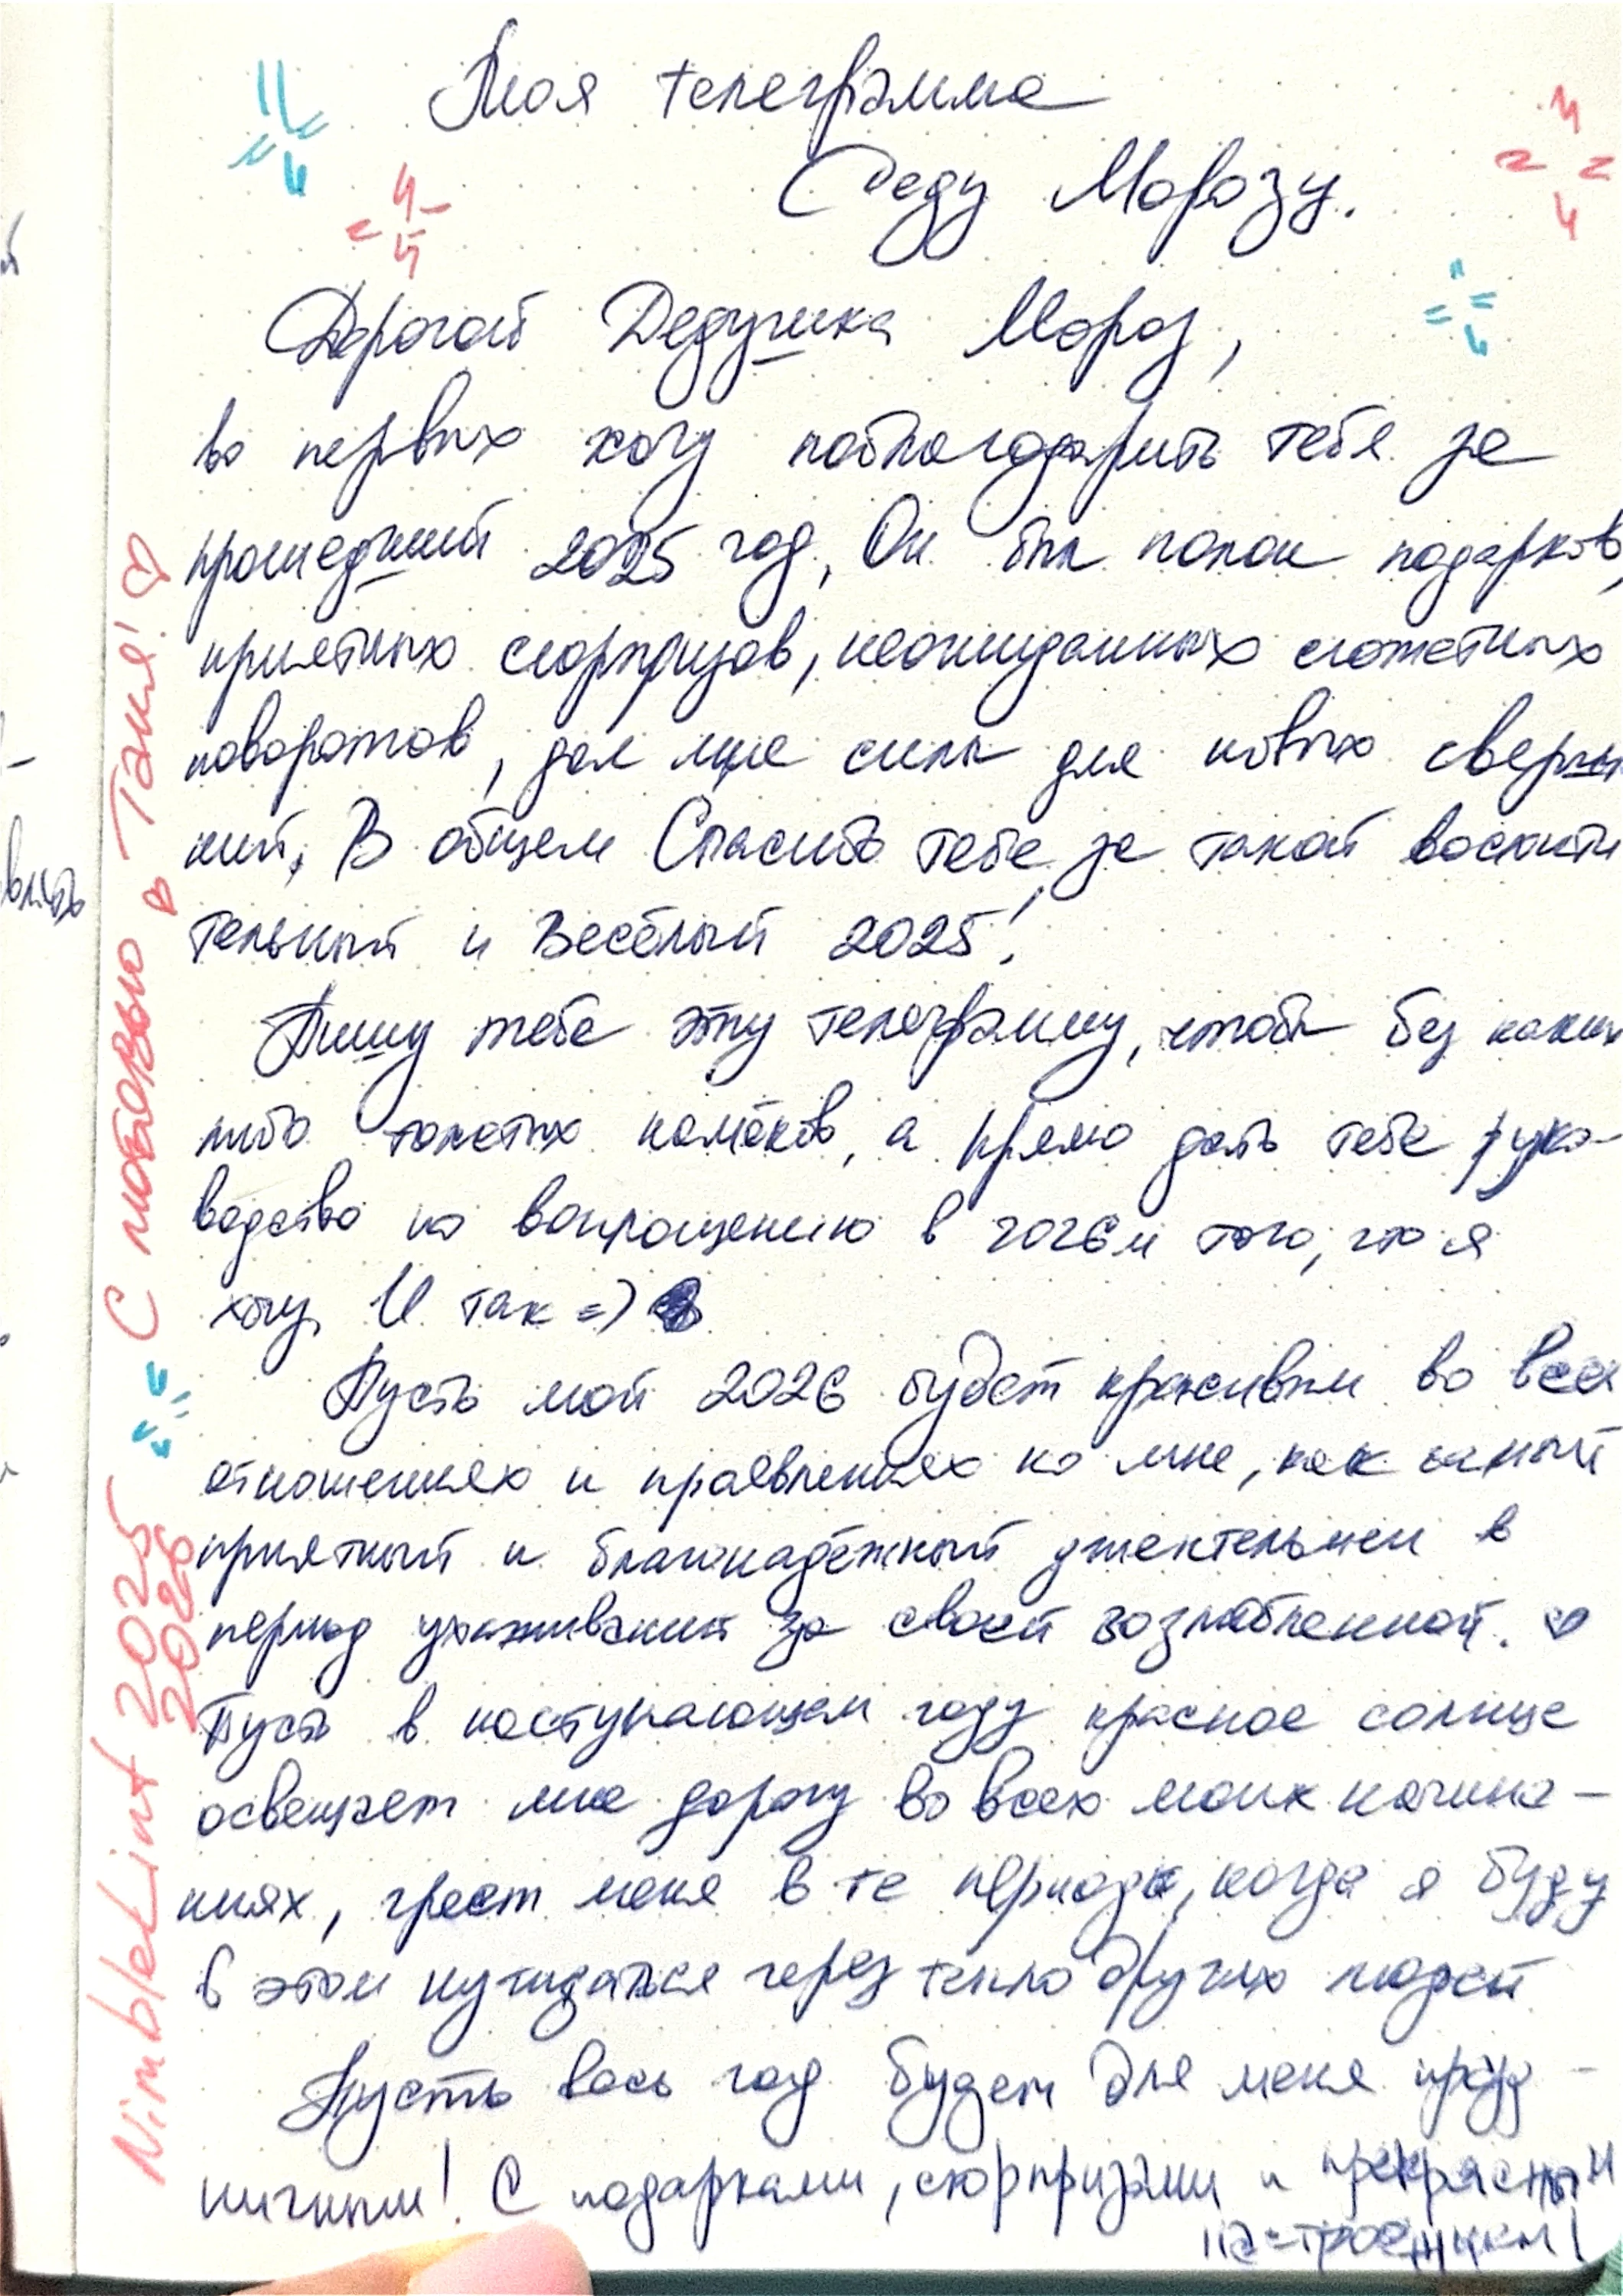 Моя телеграмма
Деду Морозу.
Дорогой Дедушка Мороз,
во первых хочу поблагодарить тебя за
прошедший 2025 год, Он был полон подарков,
приятных сюрпризов, неожиданных сюжетных
поворотов, дал мне силы для новых сверше
ний. В общем Спасибо тебе за такой восхити
тельный и весёлый 2025!
Пишу тебе эту телеграмму, чтобы без каких
либо толстых намёков, а прямо дать тебе руко-
водство по воплощению в того, что я
хочу. И так =)
Пусть мой 2026 будет красивым во всех
отношениях и проявлениях ко мне, как самый
приятный и благонадёжный джентельмен в
период ухаживания за своей возлюбленной. ♡
Пусть в наступающем году красное солнце
освещает мне дорогу во всех моих начина-
ниях, греет меня в те периоды, когда я буду
в этом нуждаться через тепло других людей
Пусть весь год будет для меня празд-
ничным! С подарками, сюрпризами и прекрасным
настроением!
NimbleLint 2025
2026
С любовью ♡ Таня! ♡